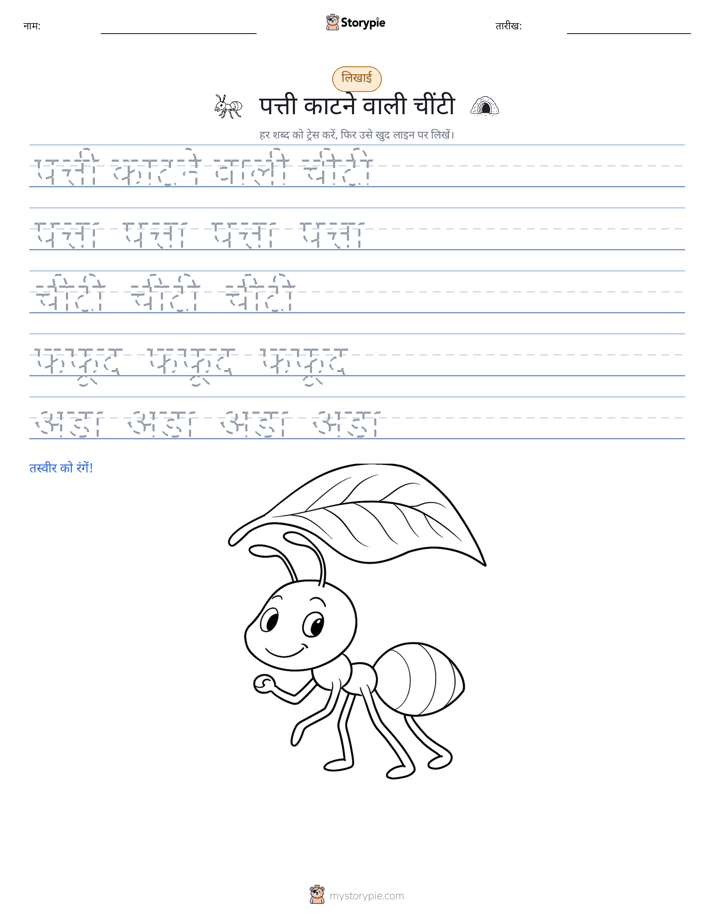 नाम:
Storypie
तारीख:
लिखाई
पत्ती काटने वाली चींटी
हर शब्द को ट्रेस करें, फिर उसे खुद लाइन पर लिखें।
पत्ती काटने वाली चींटी
पत्ता पत्ता पत्ता पत्ता
चींटी चींटी चींटी
फफूंद फफूंद फफूंद
अंडा अंडा अंडा अंडा
तस्वीर को रंगें!
mystorypie.com